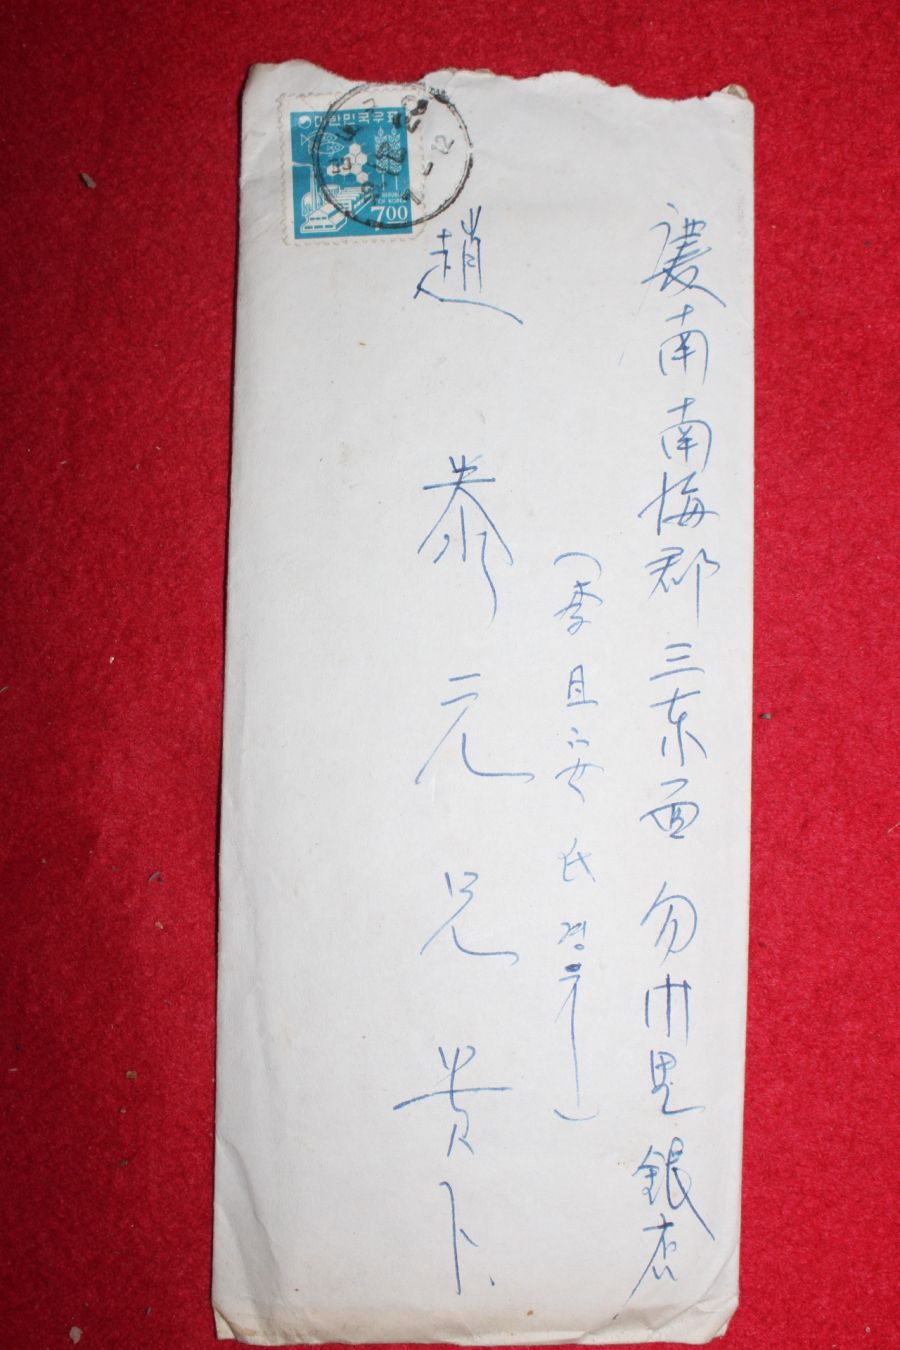 慶南南海郡 三東面 勿巾里 銀店
(李且安 氏 경유)
趙泰元 兄 貴下
대한민국우표
REPUBLIC OF KOREA
7 00